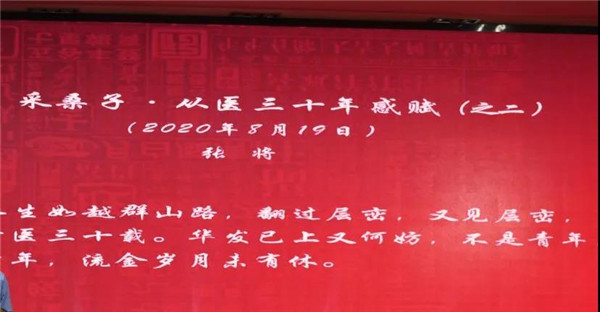 采桑子·从医三十年感赋（之二）
（2020年8月19日）
张 将
生如越群山路，翻过层峦，又见层峦，
医三十载。华发已上又何妨，不是青年
年，流金岁月未有休。